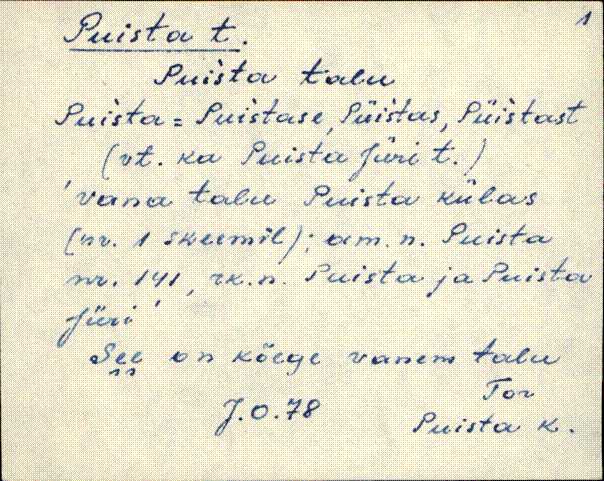 1
Puista t.
Puìsta talu
Puìsta = Puìstase, Püìstas, Püìstast
(vt. ka Puista Jüri t.)
'vana talu Puista külas
(nr. 1 skeemil); am. n. Puista
nr. 141, rk. n. Puista ja Puista
Jüri'
See on kõege vanem talu
Tor
J.O.78
Puista k.